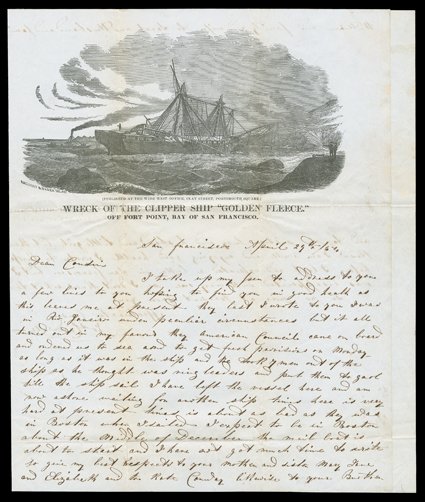 (PUBLISHED AT THE WIDE WEST OFFICE, CLAY STREET, PORTSMOUTH SQUARE.)
WRECK OF THE CLIPPER SHIP "GOLDEN FLEECE."
OFF FORT POINT, BAY OF SAN FRANCISCO.
San francisco April 29th /54
Dear Cousin
I take up my pen to adress to you
a few lines to you hoping to find you in good health as
this leaves me at present they last I wrote to you I was
in Rio Janeiro under peculiar circumstances but it all
turned out in my favour they American Councile came on board
and ordered us to sea and to get fresh provisions on Monday
as long as it was in the ship and he took 7 men out of the
ship as he thought was ring leaders and put them to gaol
till the ship sail I have left the vessel here and am
now ashore waiting for another ship things here is very
hard at present times is about as bad as they was
in Boston when I sailed I expect to be in Boston
about the Middle of December the mail boat is
about to start and I have not got much time to write
so give my best respects to your mother and sister Mary Jane
and Elizabeth and to Kate likewise to your Brother